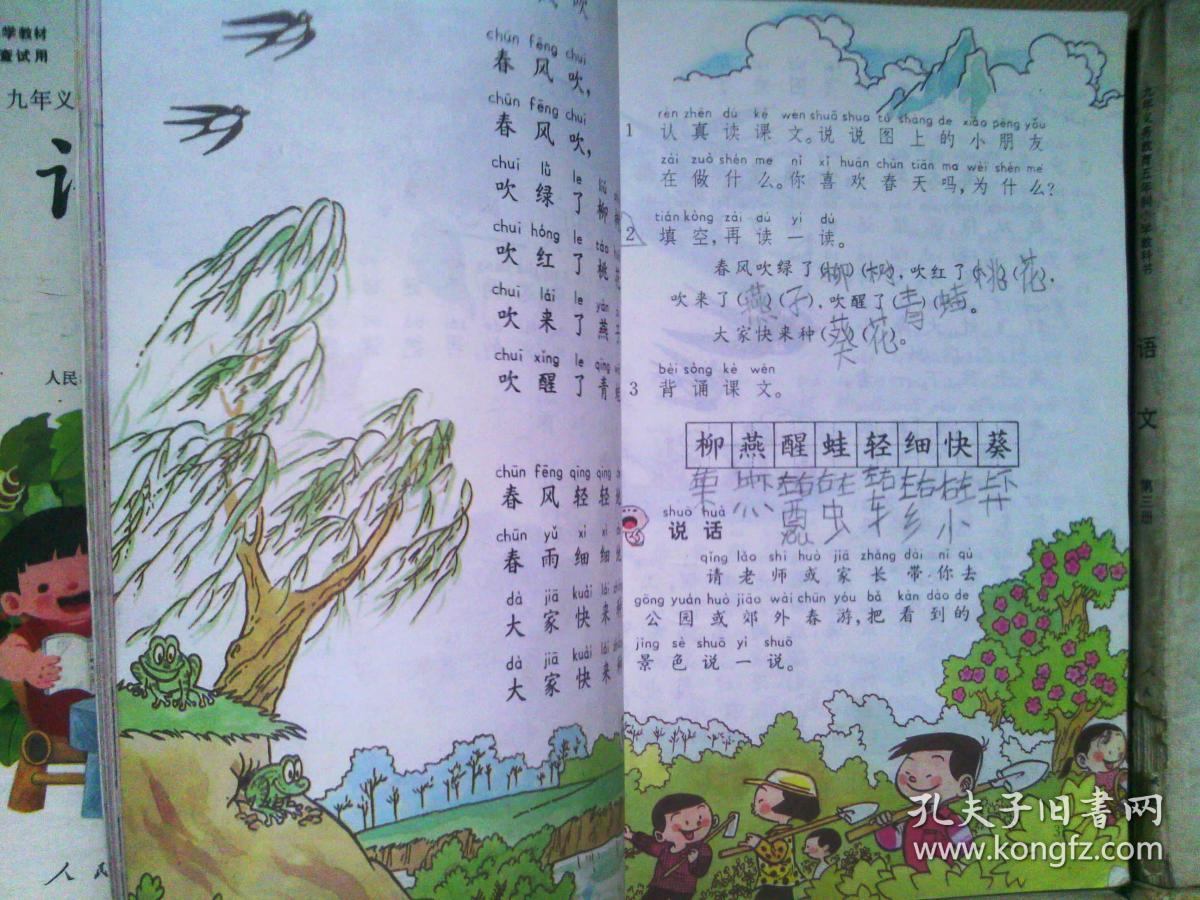 学教材
九年义
人民
人民
吹
chūn fēng chuī
春风吹,
chūn fēng chuī
春风吹,
chuī lǜ le liǔ
吹绿了柳
chuī hóng le táo
吹红了桃花
chuī lái le yàn
吹来了燕子
chuī xǐng le qīng
吹醒了青
chūn fēng qīng qīng
春风轻轻
chūn yǔ xì xì
春雨细细
dà jiā kuài lái
大家快来种
dà jiā kuài lái
大家快来种
rèn zhēn dú kè wén shuō shuo tú shàng de xiǎo péng yǒu
1 认真读课文。说说图上的小朋友
zài zuò shén me nǐ xǐ huān chūn tiān ma wèi shén me
在做什么。你喜欢春天吗,为什么?
tián kòng zài dú yì dú
2 填空,再读一读。
春风吹绿了(柳)(树),吹红了(桃)(花),
吹来了(燕)(子),吹醒了(青)(蛙)。
大家快来种(葵)(花)。
bèi sòng kè wén
3 背诵课文。
柳燕醒蛙轻细快葵
shuō huà
说话
qǐng lǎo shī huò jiā zhǎng dài nǐ qù
请老师或家长带你去
gōng yuán huò jiāo wài chūn yóu bǎ kàn dào de
公园或郊外春游,把看到的
jǐng sè shuō yi shuō
景色说一说。
九年义务教育五年制小学教科书
语文
第三册
孔夫子旧書网
www.kongfz.com